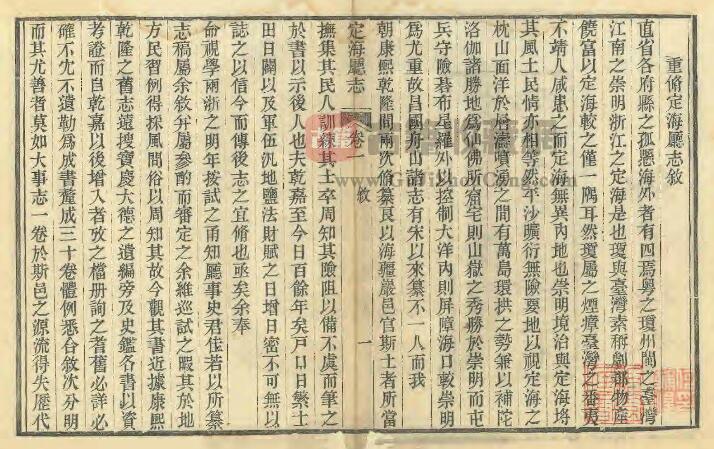 重脩定海廳志敘
直省各府縣之孤懸海外者有四焉粵之瓊州閩之臺灣
江南之崇明浙江之定海是也瓊與臺灣素稱劇郡物產
饒富以定海較之僅一隅耳然瓊屬之煙瘴臺灣之番夷
不靖人咸患之而定海無異內地也崇明境治與定海埒
其風土民情亦相等然平沙曠衍無險要地以視定海之
枕山面洋於潯濆湧之間有萬島環拱之勢兼以補陀
洛伽諸勝地為仙佛所窟宅則山嶽之秀勝於崇明而屯
兵守險碁布星羅外以控制大洋內則屏障海口較崇明
為尤重故昌國舟山諸志有宋以來纂不一人而我
朝康熙乾隆間兩次脩纂良以海疆巖邑官斯土者所當
定海廳志 卷一 敘 一
撫集其民人訓練其士卒周知其險阻以備不虞而筆之
於書以示後人也夫乾嘉至今日百餘年矣戶口日繁土
田日闢以及軍伍汛地鹽法財賦之日增日密不可無以
誌之以信今而傳後志之宜脩也亟矣余奉
命視學兩浙之明年按試之甬知廳事史君住若以所纂
志稿屬余敘并屬參酌而審定之余維巡試之暇其於地
方民習例得採風問俗以周知其故今觀其書近據康熙
乾隆之舊志遠搜寶慶大德之遺編旁及史鑑各書以資
考證而自乾嘉以後增入者攷之檔冊詢之耆舊必詳必
確不宂不遺勒為成書釐成三十卷體例悉合敘次分明
而其尤善者莫如大事志一卷於斯邑之源流得失歷代